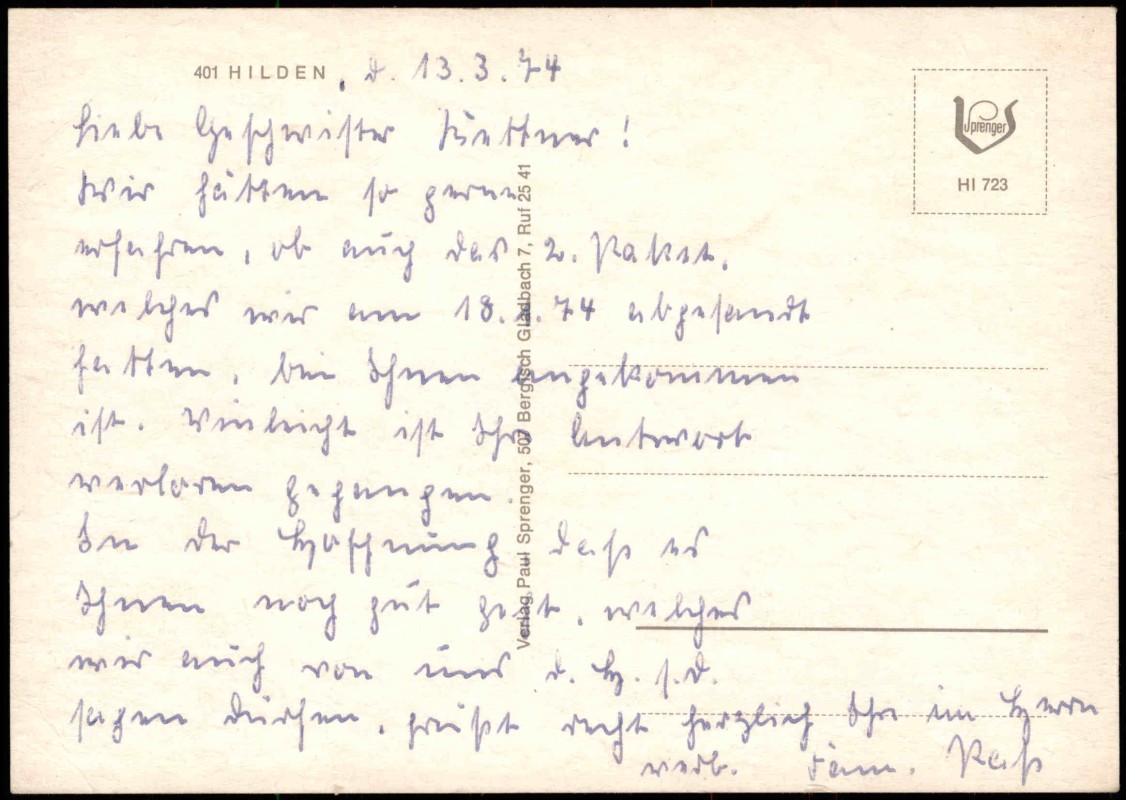 401 HILDEN, d. 13.3.74
Liebe Geschwister
Wir hätten so gerne
erfahren, ob auch das 2. Paket,
welches wir am 18. .74 abgesandt
hatten, bei Ihnen angekommen
ist. Vielleicht ist Ihre Antwort
verloren gegangen.
In der Hoffnung daß es
Ihnen noch gut geht, welches
wir auch von uns d. H. s. D.
sagen dürfen, grüßt recht herzlich Ihre im Herrn
verb. Fam.
Sprenger
HI 723
Verlag Paul Sprenger, 507 Bergisch Gladbach 7, Ruf 25 41